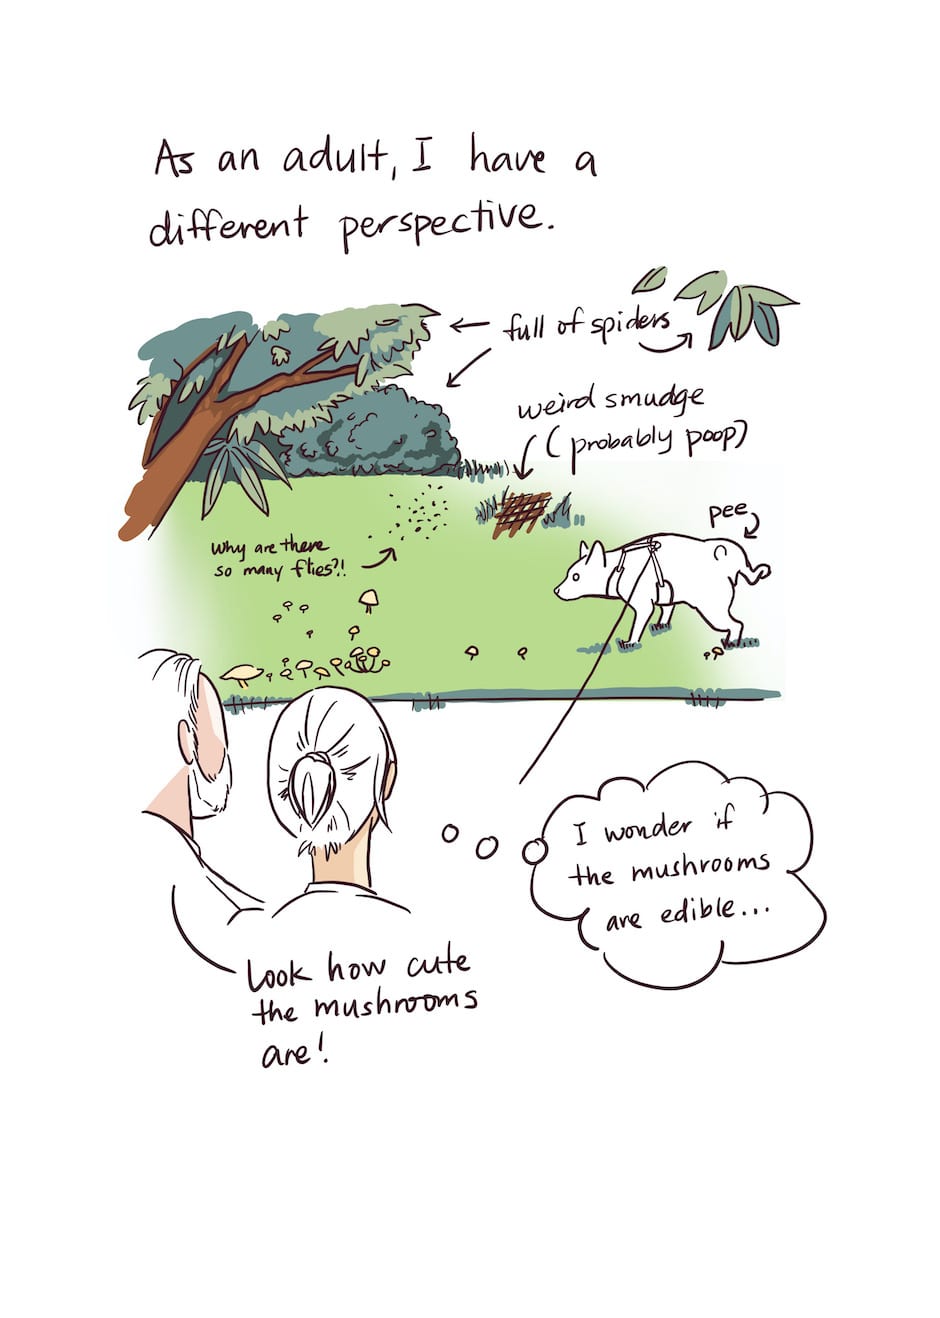 As an adult, I have a
different perspective.
full of spiders
weird smudge
(probably poop)
pee
why are there
so many flies?!
I wonder if
the mushrooms
are edible...
Look how cute
the mushrooms
are!